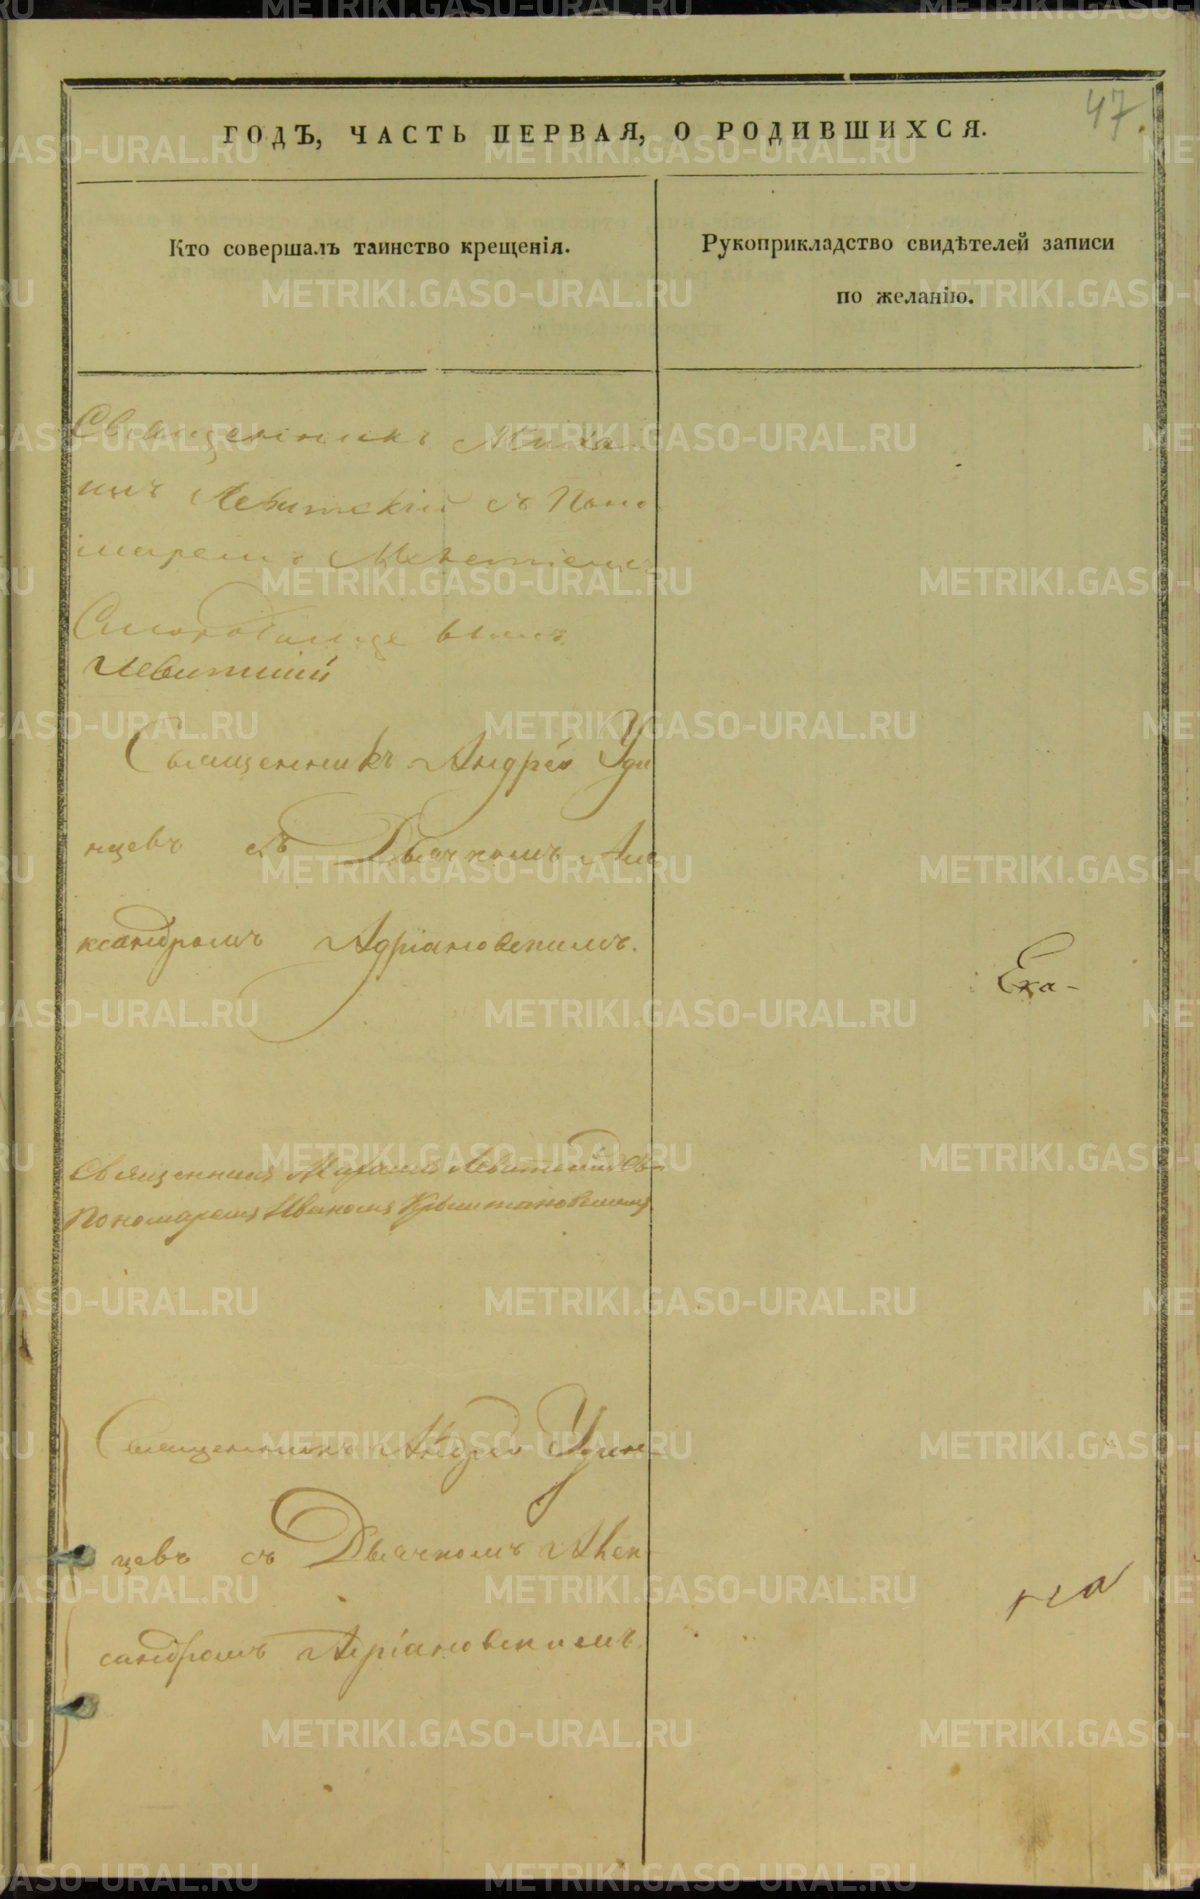 47.
ГОДЪ, ЧАСТЬ ПЕРВАЯ, О РОДИВШИХСЯ.
Кто совершалъ таинство крещенія.
Рукоприкладство свидѣтелей записи
по желанію.
Священникъ Миха
илъ Левитскій съ Поно
маремъ
Левитский
Священникъ Андрей Уди
нцевъ съ Дьячкомъ Але
ксандромъ Адріановскимъ.
Ека-
Священникъ Михаилъ Левитскій съ
Пономаремъ Иваномъ
Священникъ Андрей Удин
цевъ съ Дьячкомъ Алек
сандромъ Адріановскимъ.
METRIKI.GASO-URAL.RU